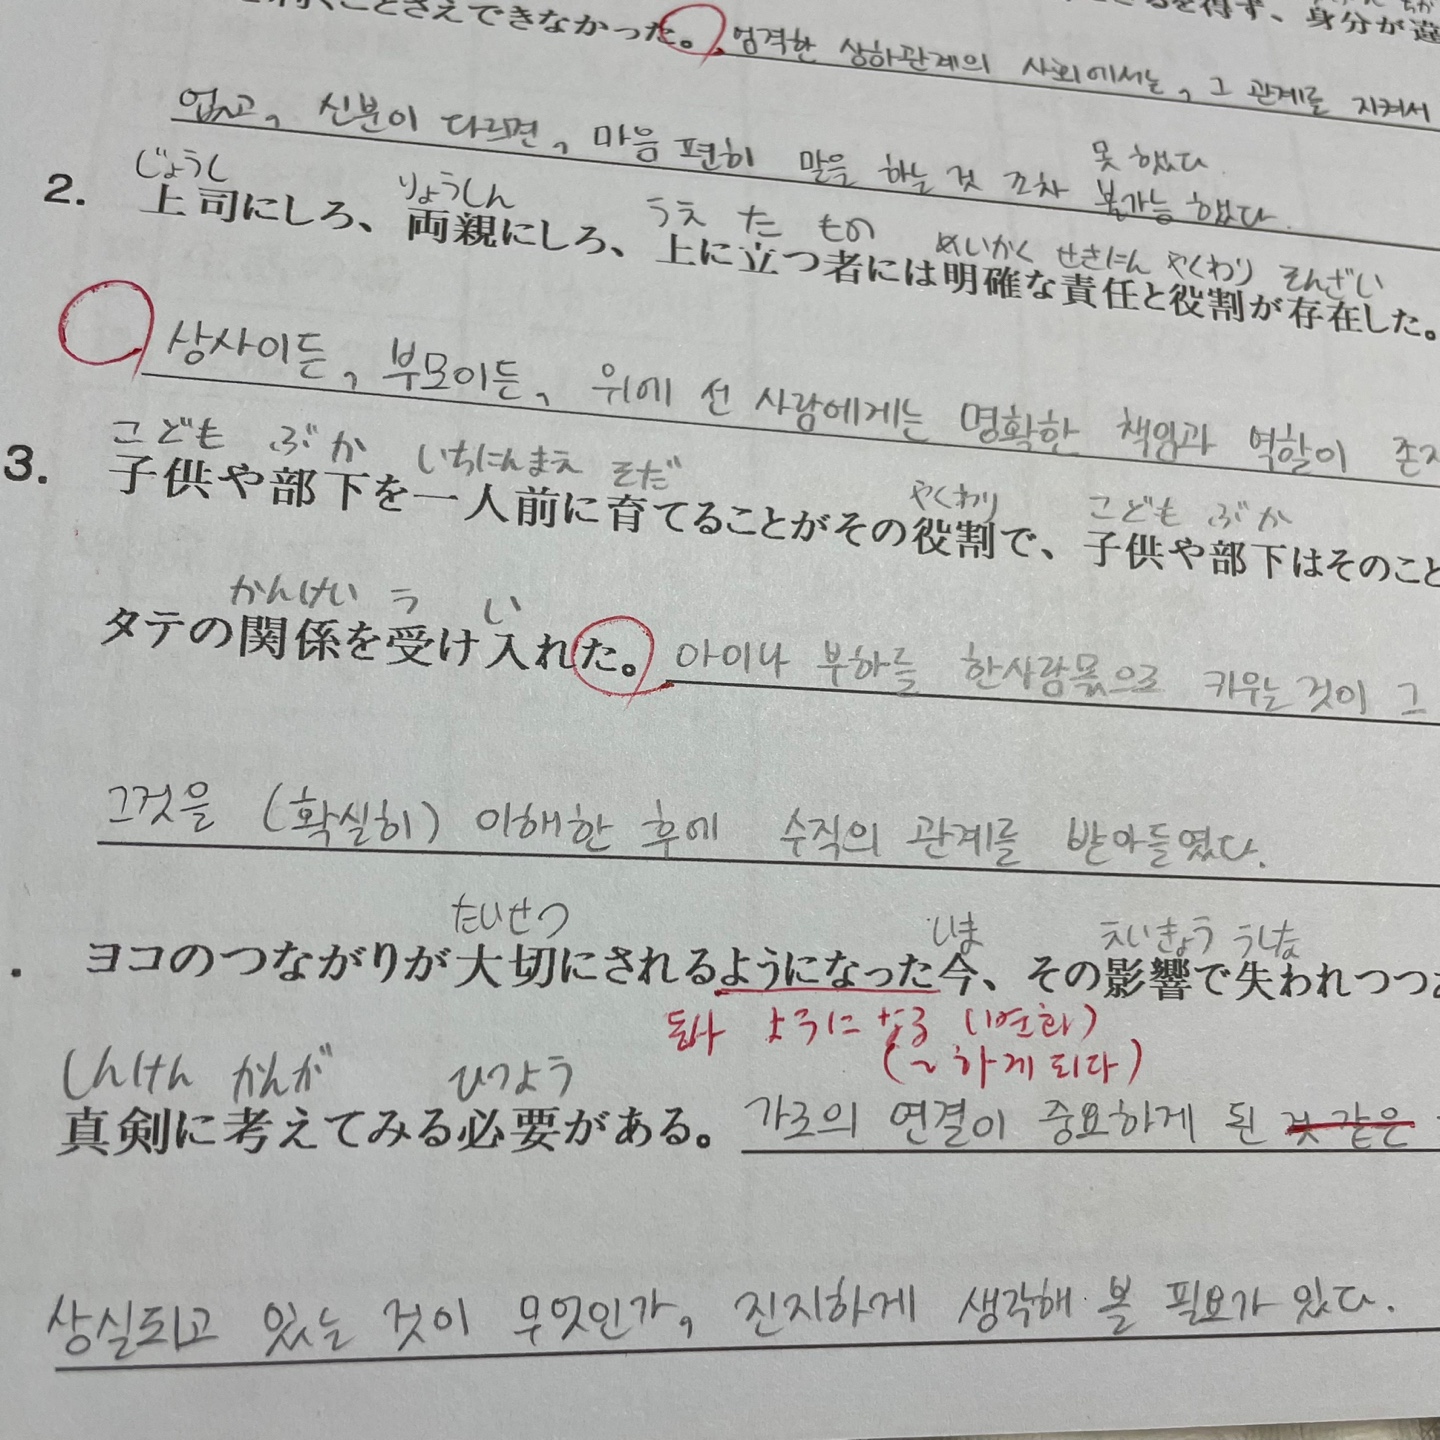 くことさえできなかった。
るを得ず、身分が違
엄격한 상하관계의 사회에서는, 그 관계를 지켜서
없고, 신분이 다르면, 마음 편히 말을 하는 것 조차 불가능 했다.
못 했다
じょうし りょうしん うえ た もの めいかく せきにん やくわり そんざい
2. 上司にしろ、両親にしろ、上に立つ者には明確な責任と役割が存在した。
상사이든, 부모이든, 위에 선 사람에게는 명확한 책임과 역할이 존재
こども ぶか いちにんまえ そだ やくわり こども ぶか
3. 子供や部下を一人前に育てることがその役割で、子供や部下はそのこと
かんけい う い
タテの関係を受け入れた。 아이나 부하를 한사람몫으로 키우는 것이 그
그것을 (확실히) 이해한 후에 수직의 관계를 받아들였다.
たいせつ いま えいきょう うしな
. ヨコのつながりが大切にされるようになった今、その影響で失われつつあ
동사 ように なる (변화)
(~하게 되다)
しんけん かんが ひつよう
真剣に考えてみる必要がある。 가로의 연결이 중요하게 된 것 같은
상실되고 있는 것이 무엇인가, 진지하게 생각해 볼 필요가 있다.